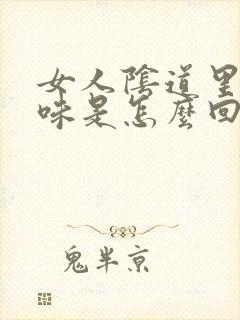 女人陰道里
味是怎麼回
鬼半京